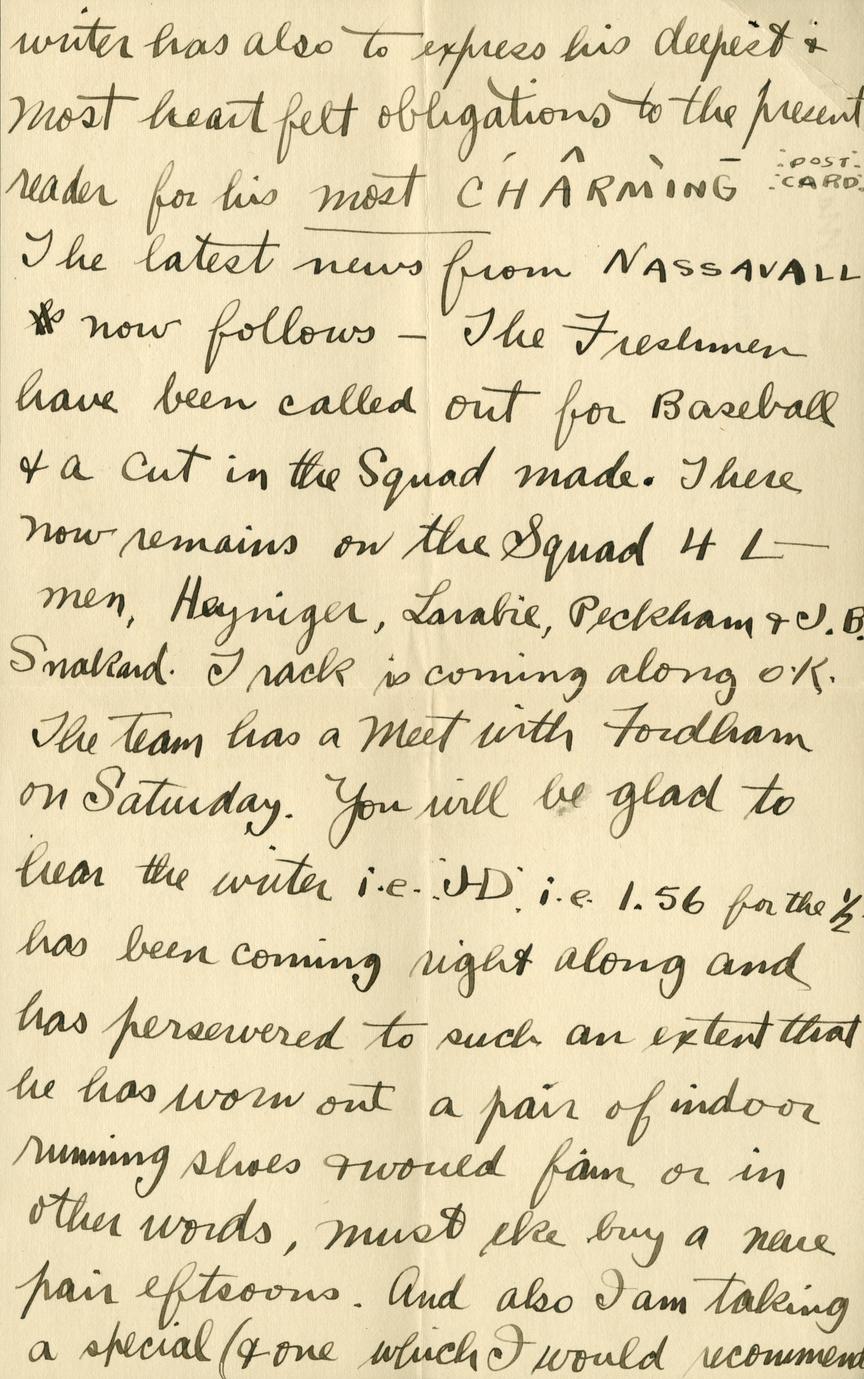 writer has also to express his deepest &
most heart felt obligations to the present
reader for his most CHÂRMING POST CARD.
The latest news from NASSAVALL
now follows – The Freshmen
have been called out for Baseball
& a cut in the Squad made. There
now remains on the Squad 4 L—
men, Heyniger, Larabie, Peckham & J. B.
Snakard. Track is coming along O.K.
The team has a Meet with Fordham
on Saturday. You will be glad to
hear the writer i.e. J-D. i.e. 1.56 for the ½
has been coming right along and
has persewered to such an extent that
he has worn out a pair of indoor
running shoes & would fain or in
other words, must eke buy a new
pair eftsoons. And also I am taking
a special (& one which I would recommend